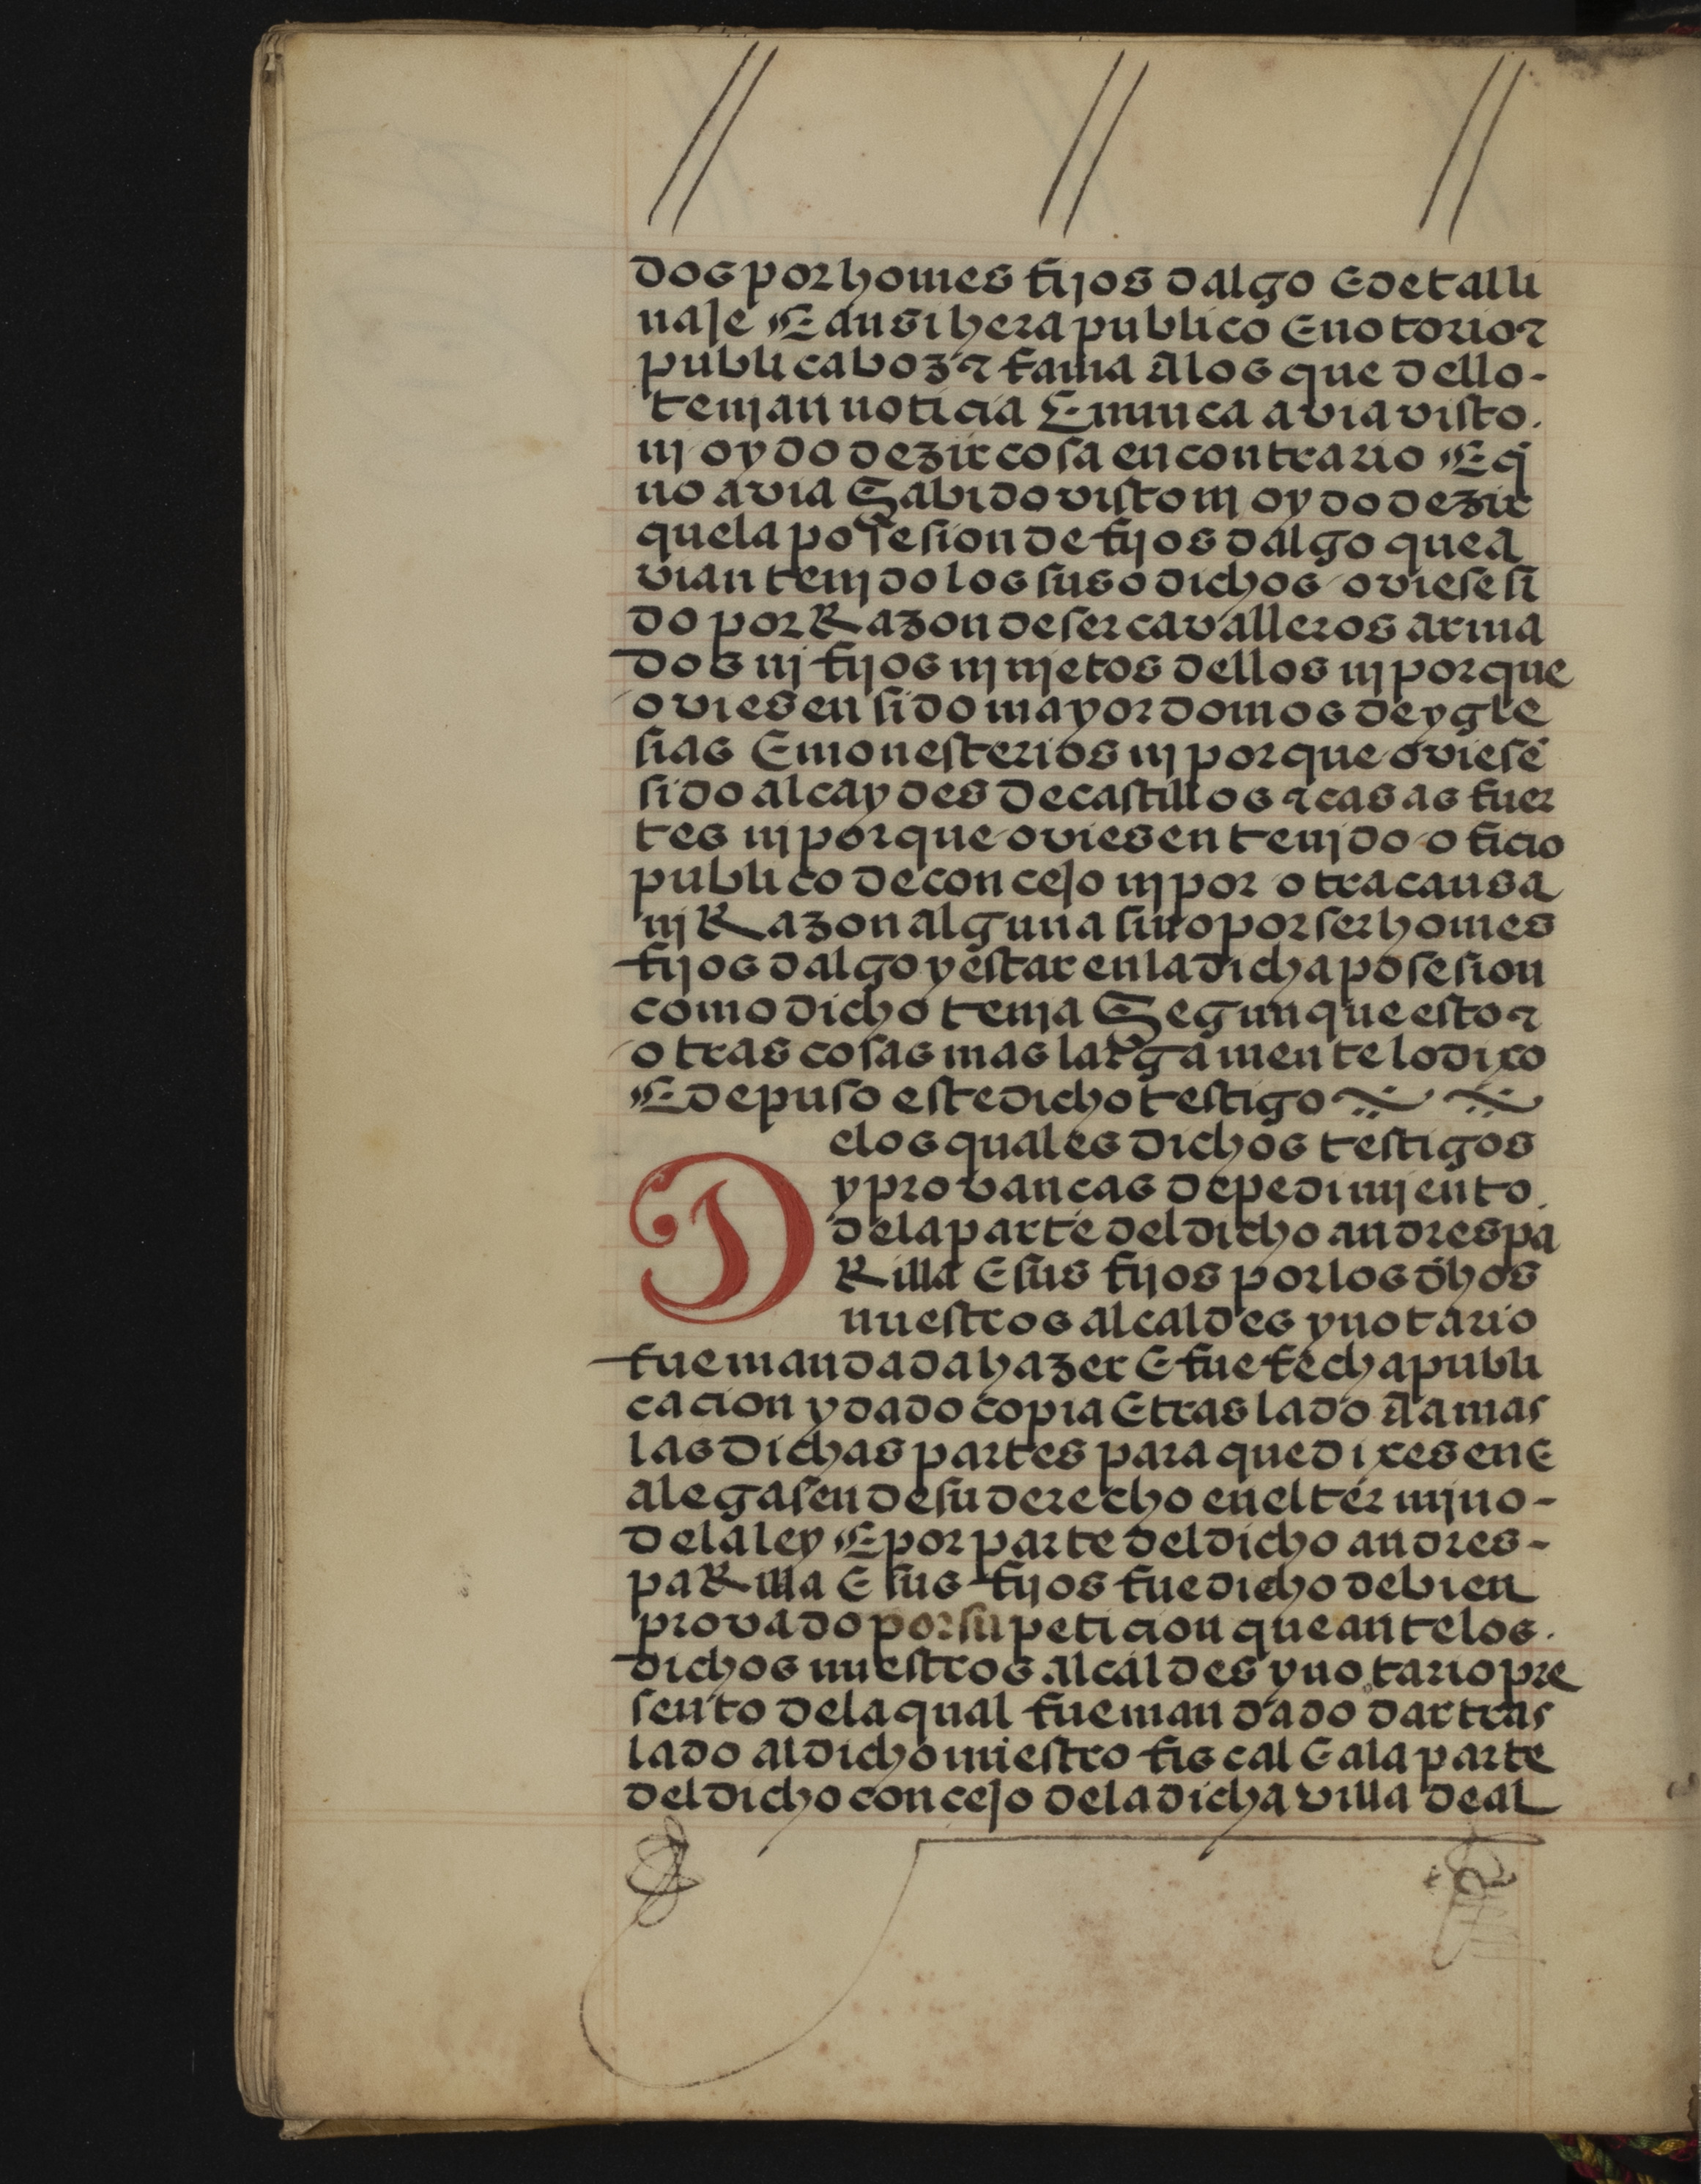 dos por homes fijos dalgo E de tal li
naje E ansi hera publico E notorio ⁊
publica boz ⁊ fama A los que dello-
tenjan noticia E nunca avia visto.
nj oydo dezir cosa en contrario E q̃
no avia Sabido visto nj oydo dezir
que la posesion de fijos dalgo que a
vian tenjdo los suso dichos oviese si
do por Razon de ser cavalleros arma
dos nj fijos nj njetos dellos nj porque
oviesen sido mayordomos de ygle
sias E monesterios nj porque oviesẽ
sido alcaydes de castillos ⁊ casas fuer
tes nj porque oviesen tenjdo oficio
publico de concejo nj por otra causa
nj Razon alguna sino por ser homes
fijos dalgo y estar en la dicha posesion
como dicho tenja Segun que esto ⁊
otras cosas mas largamente lo dixo
E depuso este dicho testigo
D elos quales dichos testigos
y provancas de pedimjento.
de la parte del dicho andres pa
Rilla E sus fijos por los dhõs
nuestros alcaldes y notario
fue mandada hazer E fue fecha publi
cacion y dado copia E traslado A amas
las dichas partes para que dixesen E
alegasen de su derecho en el termjno-
de la ley E por parte del dicho andres-
paRilla E sus fijos fue dicho de bien
provado por su peticion que ante los.
dichos nuestros alcaldes y notario pre
sento de la qual fue mandado dar tras
lado al dicho nuestro fiscal E a la parte
del dicho concejo de la dicha villa de al